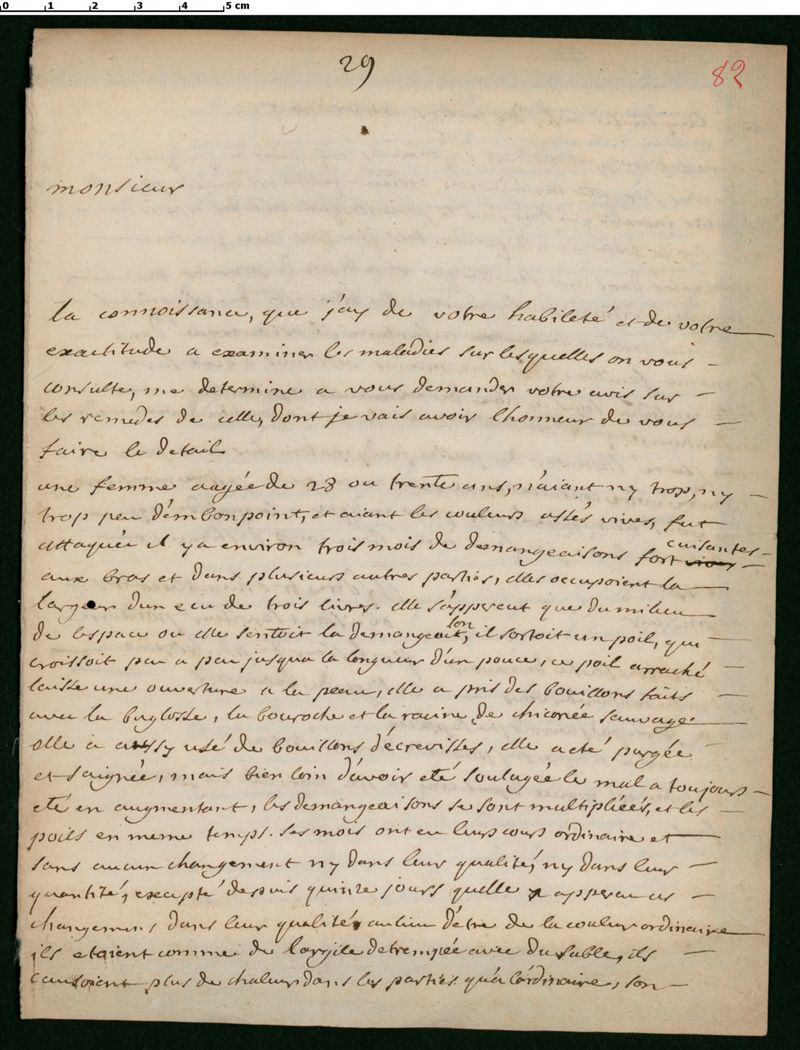 0 1 2 3 4 5 cm
29
82
monsieur
la connoissance, que j'ay de votre habileté et de votre
exactitude a examiner les maladies sur lesquelles on vous
consulte, me determine a vous demander votre avis sur
les remedes de celle, dont je vais avoir lhonneur de vous
faire le detail
une femme aagée de 28 ou trente ans, n'aiant ny trop, ny
trop peu d'embonpoint, et aiant les couleurs assés vives, fut
attaquée il y a environ trois mois de demangeaisons fort vives cuisantes
aux bras et dans plusieurs autres parties, elles occupoient la
largeur dun ecu de trois livres. elle s'apperçut que du milieu
de lespace ou elle sentoit la demangeaison, il sortoit un poil, qui
croissoit peu a peu jusqua la longueur d'un pouce, ce poil arraché
laisse une ouverture a la peau, elle a pris des bouillons faits
avec la buglosse, la bouroche et la racine de chicorée sauvage
elle a aussy usé de bouillons d'écrevisses, elle a eté purgée
et saignée, mais bien loin d'avoir eté soulagée le mal a toujours
eté en augmentant, les demangeaisons se sont multipliéés, et les
poils en meme temps. ses mois ont eu leurs cours ordinaire et
sans aucun changement ny dans leur qualité, ny dans leur
quantité, excepté depuis quinze jours quelle apperçeu ces
changemens dans leur qualité, au lieu d'étre de la couleur ordinaire
ils etoient comme de largile detrempée avec du sable, ils
causoient plus de chaleur dans les parties qu'a l'ordinaire, son